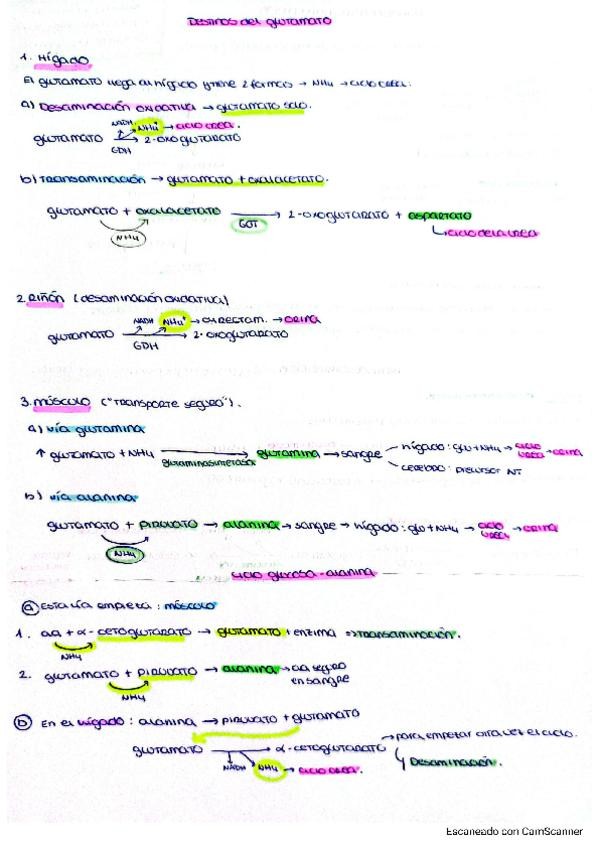 Destinos del glutamato
1. Hígado
El glutamato llega al hígado y tiene 2 formas → NH4 → ciclo urea:
a) Desaminación oxidativa → glutamato solo.
NADH NH4+ → ciclo urea.
glutamato → 2-oxoglutarato
GDH
b) Transaminación → glutamato + oxalacetato.
glutamato + oxalacetato → 2-oxoglutarato + aspartato
NH4 GOT ↳ ciclo de la urea
2. Riñón (desaminación oxidativa)
NADH NH4+ → directam. → orina
glutamato → 2-oxoglutarato
GDH
3. Músculo ("transporte seguro").
a) vía glutamina
↑ glutamato + NH4 → glutamina → sangre
glutaminasintetasa
hígado: glu + NH4 → ciclo urea → orina
cerebro: precursor NT
b) vía alanina
glutamato + piruvato → alanina → sangre → hígado: glu + NH4 → ciclo urea → orina
NH4
ciclo glucosa-alanina
a Esta vía empieza: músculo
1. aa + α-cetoglutarato → glutamato + enzima ⇒ transaminación.
NH4
2. glutamato + piruvato → alanina → aa seguro en sangre
NH4
b En el hígado: alanina → piruvato + glutamato
glutamato → α-cetoglutarato → para empezar otra vez el ciclo.
NADH NH4 → ciclo urea. ↳ Desaminación.
Escaneado con CamScanner